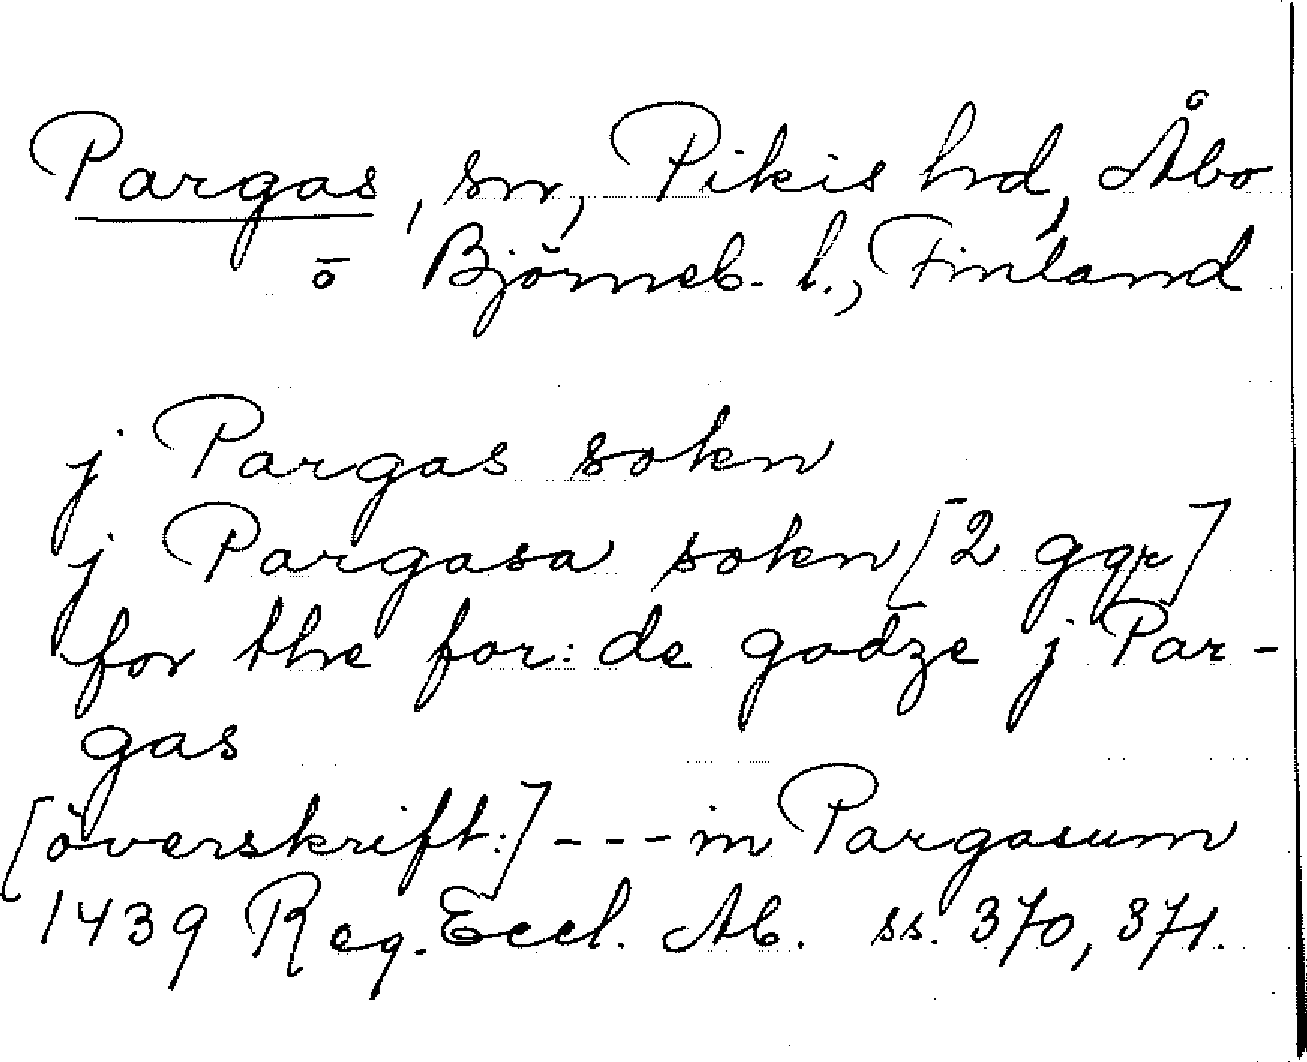 Pargas, sn, Pikis hd, Åbo
o Björneb. l., Finland
j Pargas sokn
j Pargasa sokn [2 ggr]
for the for:de godze j Par-
gas
[överskrift:] --- in Pargasum
1439 Reg. Eccl. Ab. ss. 370, 371.